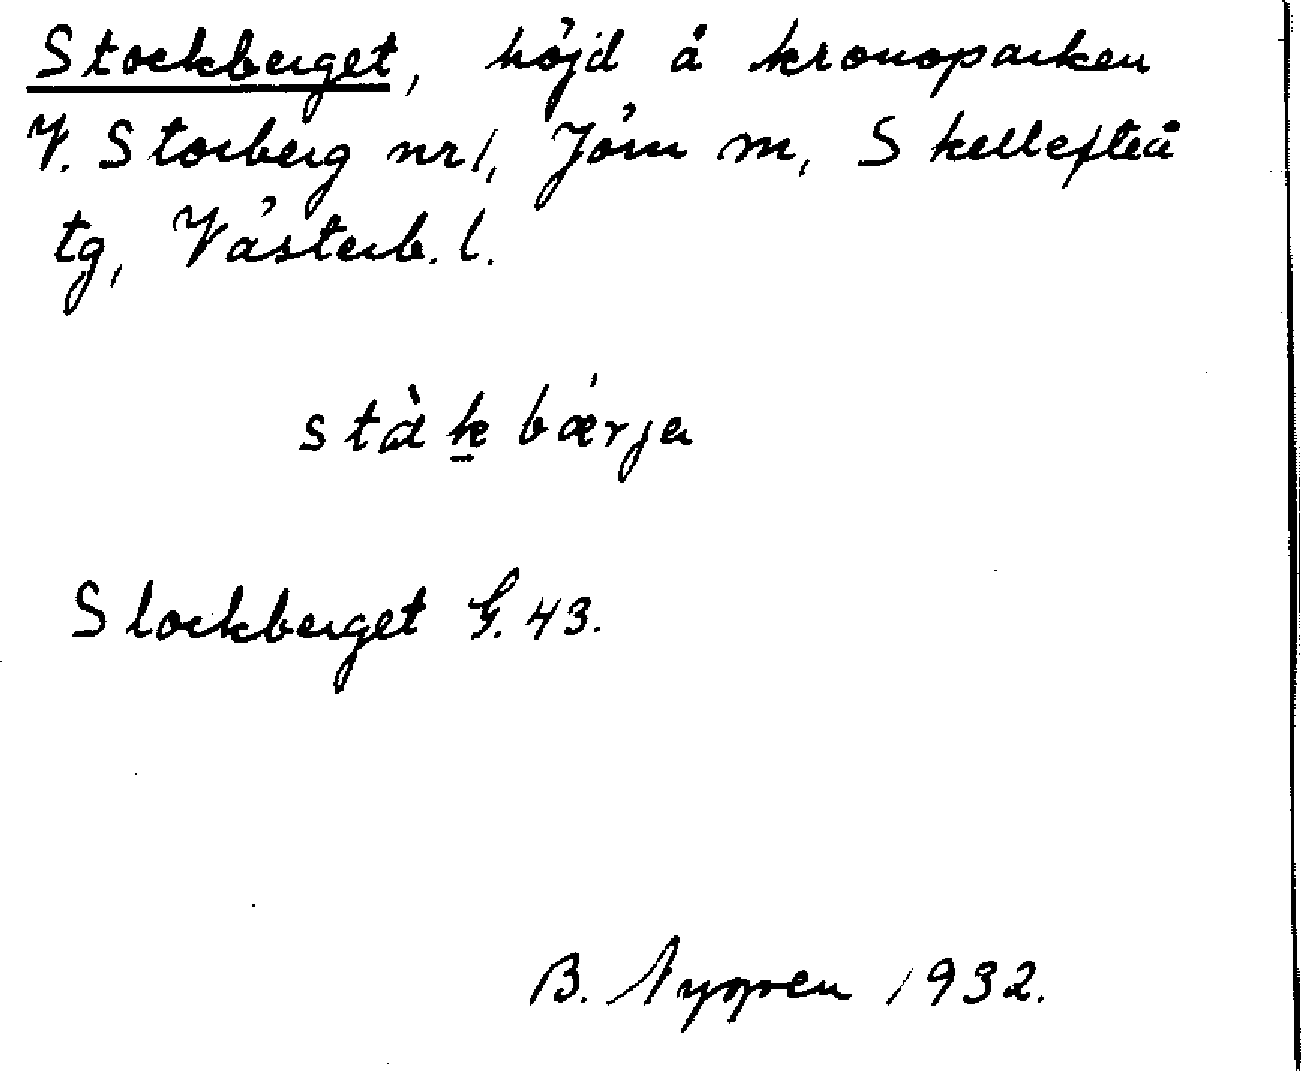 Stockberget, höjd å kronoparken
V. Storberg nr 1, Jörn m, Skellefteå
tg, Västerb. l.
stàkbǽrja
Stockberget G. 43.
B. Nyppen 1932.